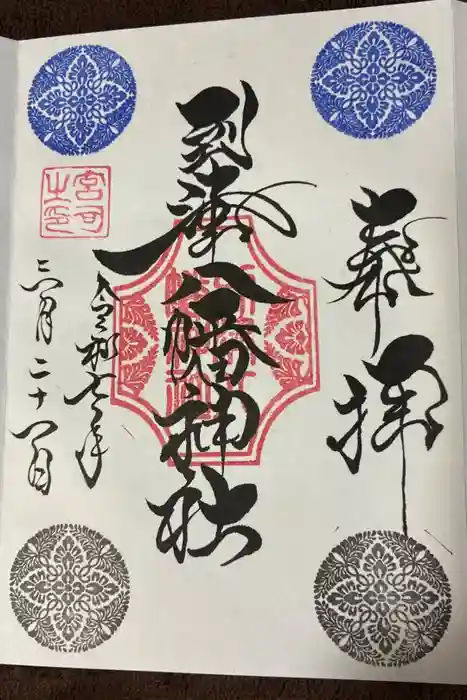 奉拝
到津八幡神社
令和七年
六月二十八日
宮司
之印